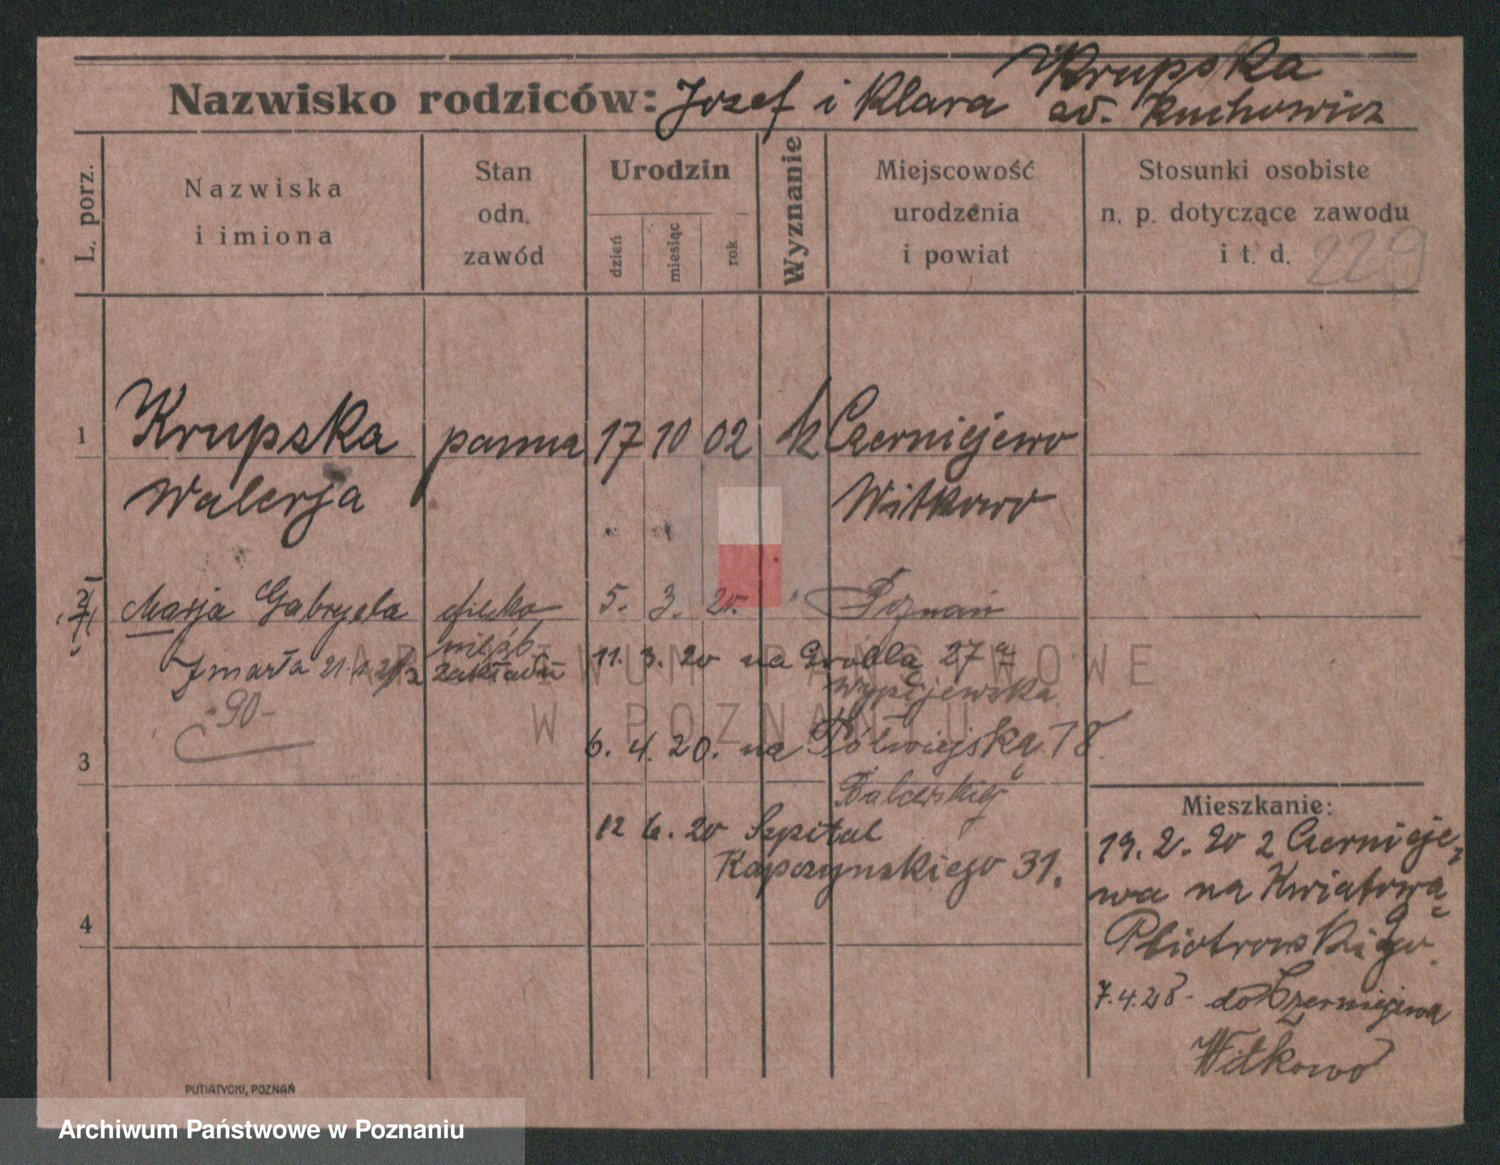 Krupska
Nazwisko rodziców: Jozef i Klara
Kuchowicz
L. porz.
Nazwiska
i imiona
Stan
odn.
zawód
Urodzin
dzień
miesiąc
rok
Wyznanie
Miejscowość
urodzenia
i powiat
Stosunki osobiste
n. p. dotyczące zawodu
i t. d.
229
1
Krupska panna 17 10 02 k Czerniejewo
Walerja Witkowo
2
Marja Gabryela 5. 3. 20. Poznań
nieśl.
Zmarła 21. zakładu 11. 3. 20 na Grobla 27a
-90-
6. 4. 20. na Półwiejską 18
3
Balcerskiej
12 6. 20 Szpital
Kapczynskiego 31.
4
Mieszkanie:
19. 2. 20 z Czernieje-
wa na Kwiatową
Piotrowskiego.
7.4.28 do Czerniejewa
Witkowo
PUTIATYCKI, POZNAŃ
ARCHIWUM PAŃSTWOWE
W POZNANIU
Archiwum Państwowe w Poznaniu